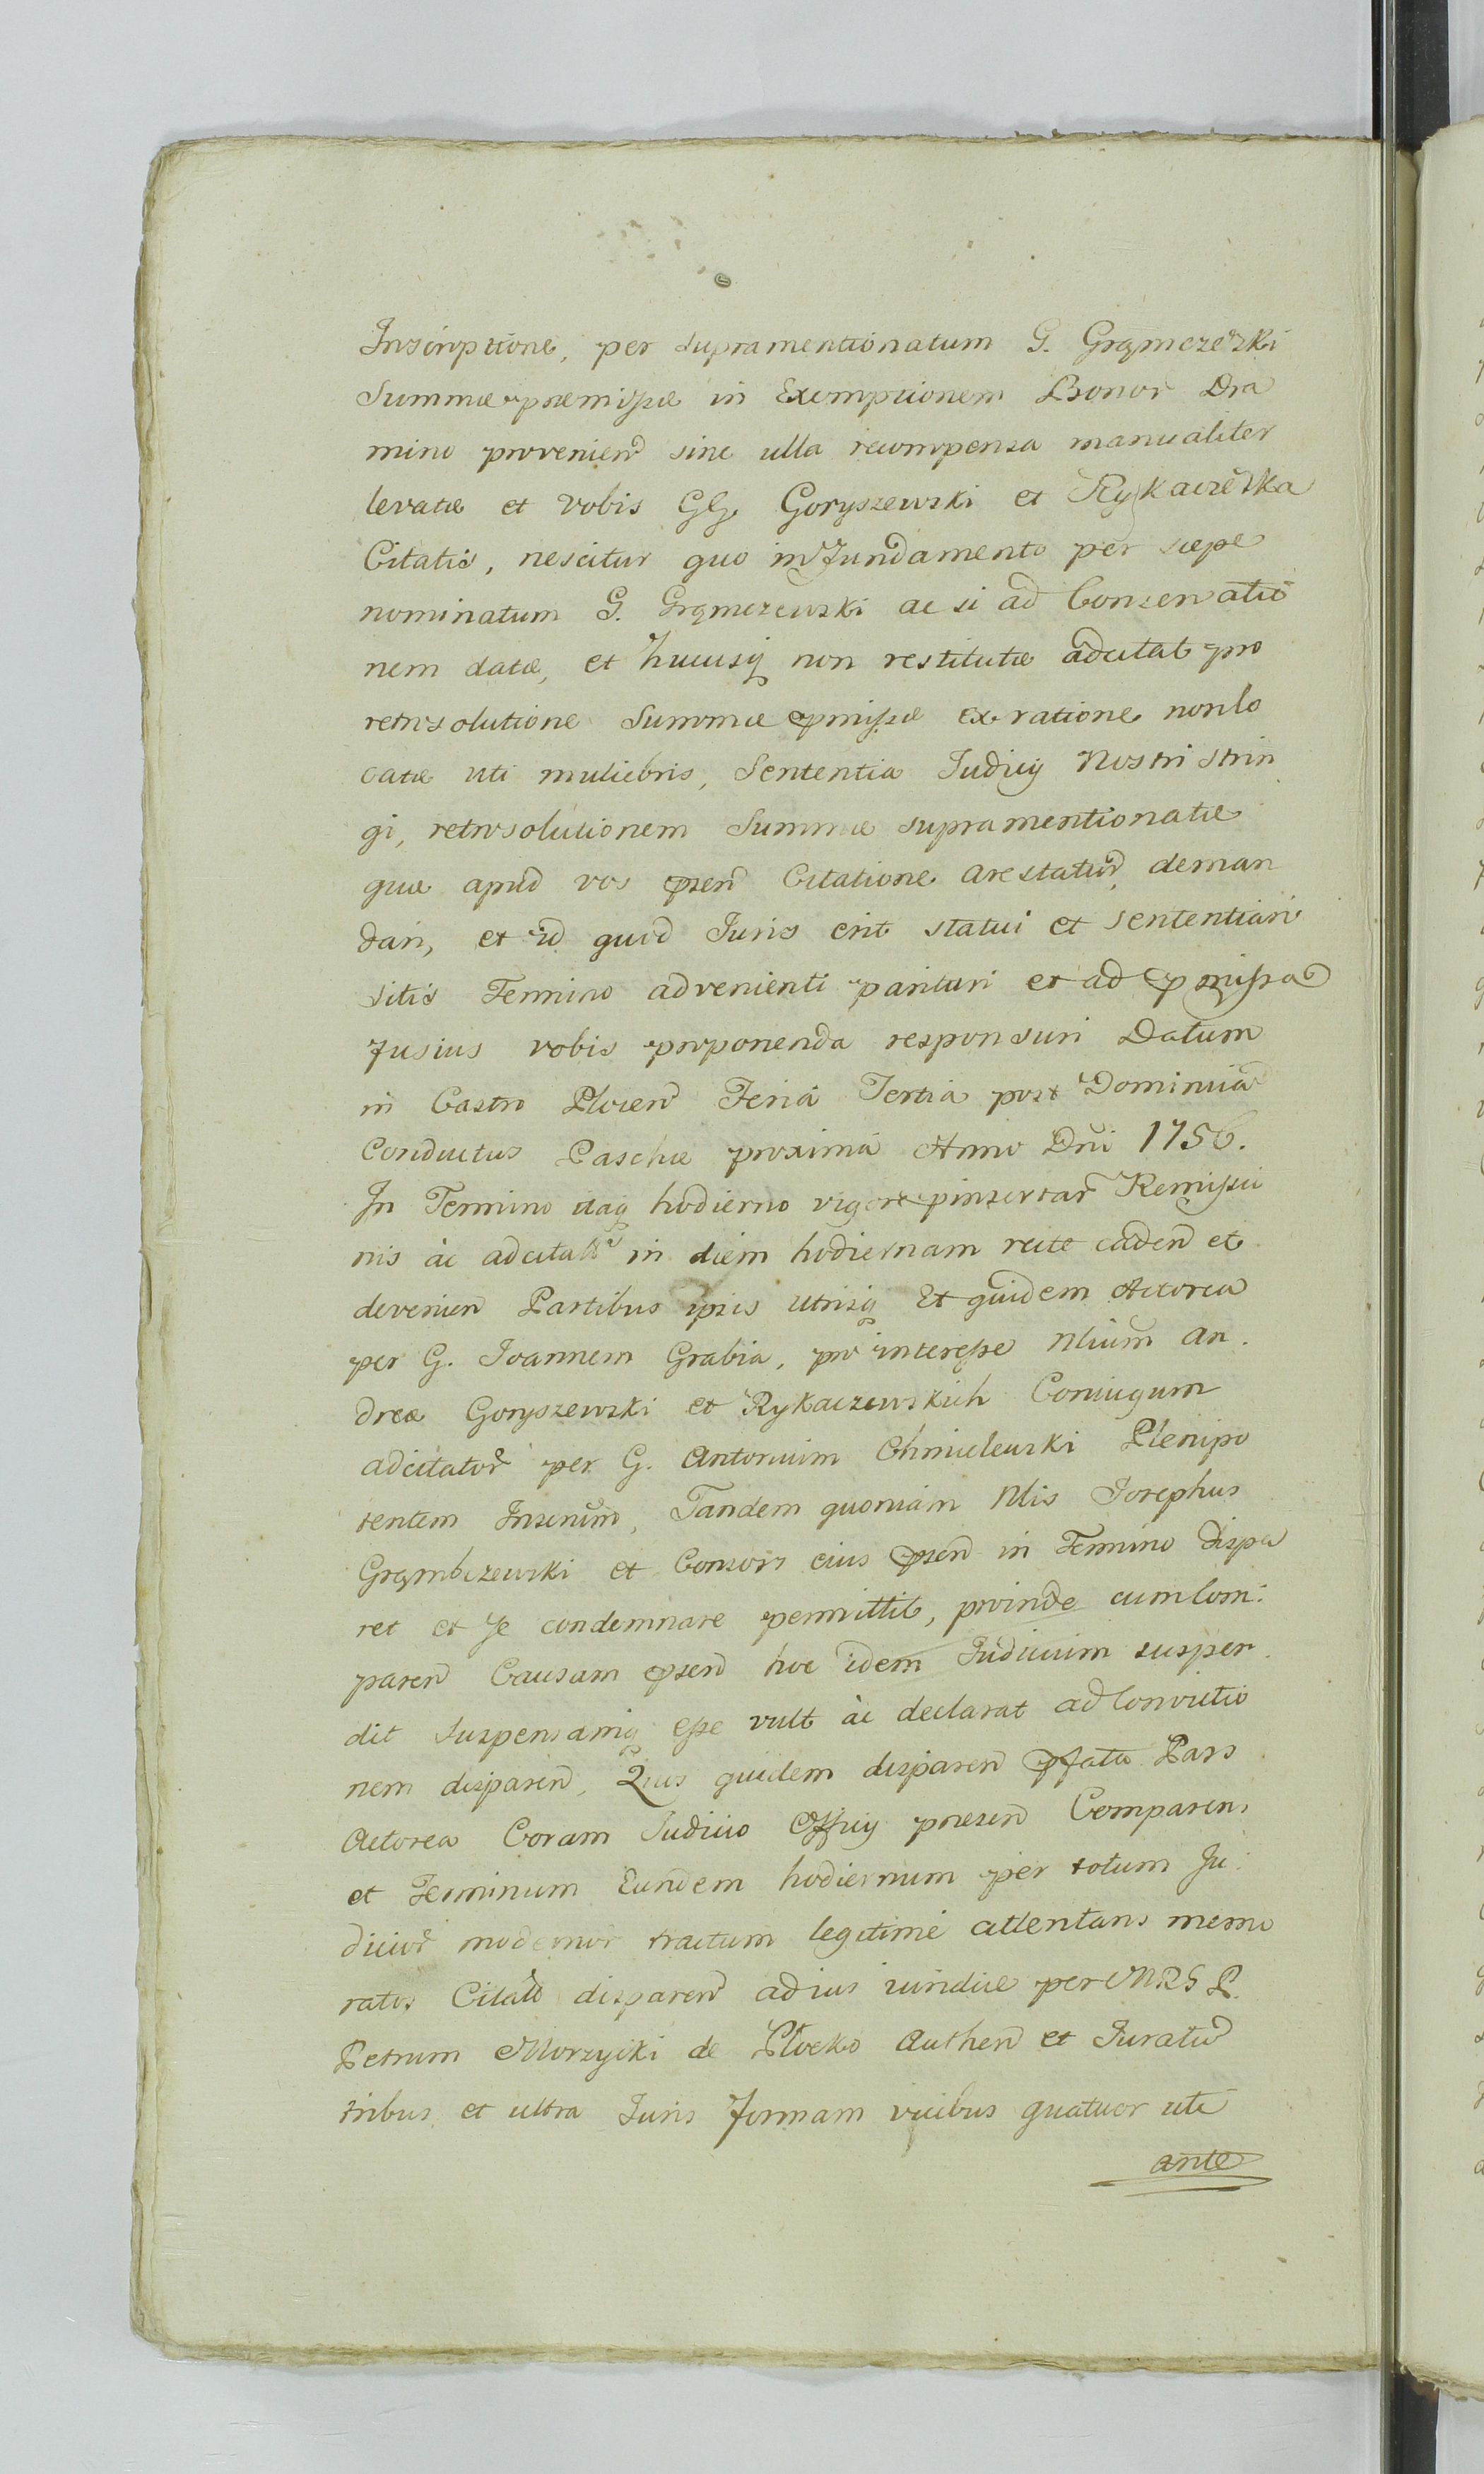 Inscriptione, per supramentionatum G. Grąmczeski
Summæ præmissæ in Exemptionem Bonor Dra
mino provenien sine ulla recompensa manualiter
levatæ et vobis GG. Goryszewski et Rykaczeska
Citatis, nescitur quo in fundamento per sæpe
nominatum G. Grąmczewski ac si ad Conservatio
nem datæ, et hucusq non restitutæ adcitat pro
retrosolutione Summæ pmissæ ex ratione nonlo
catæ uti muliebris, Sententia Iudicij Nostri strin
gi, retrosolutionem Summæ supramentionatæ
quæ apud vos psen Citatione arestatur, deman
dari, et id quod Iuris erit statui et sententiari
sitis Termino advenienti parituri et ad pmissa
fusius vobis proponenda responsuri Datum
in Castro Plocen Feria Tertia post Dominica
Conductus Paschæ proxima Anno Dni 1756.
In Termino itaq hodierno vigore pinsertar Remissio
nis ac adcita in diem hodiernam recte caden et
devenien Partibus ipsis utrisq Et quidem Actorea
per G. Ioannem Grabia, pro interesse Nlium An.
dreæ Goryszewski et Rykaczewskich Coniugum
adcitator per G. Antonium Chmielewski Plenipo
tentem Tandem quoniam Nlis Iosephus
Grąmbczewski et Consors eius psen in Termino dispa
ret et se condemnare permittit, proinde cum Com:
paren Causam psen hoc idem Iudicium suspen
dit suspensamq esse vult ac declarat ad Convictio
nem disparen, Quos quidem disparen pfata Pars
Actorea Coram Iudicio Officij presen Comparens
et Terminum Eundem hodiernum per totum Iu:
dicior modernor tractum legitime attentans memo
ratos Citato disparen ad ius iuridice per MRS P.
Petrum Morzycki de Plocko Authen et Iuratu
tribus et ultra Iuris formam vicibus quatuor uti
ante